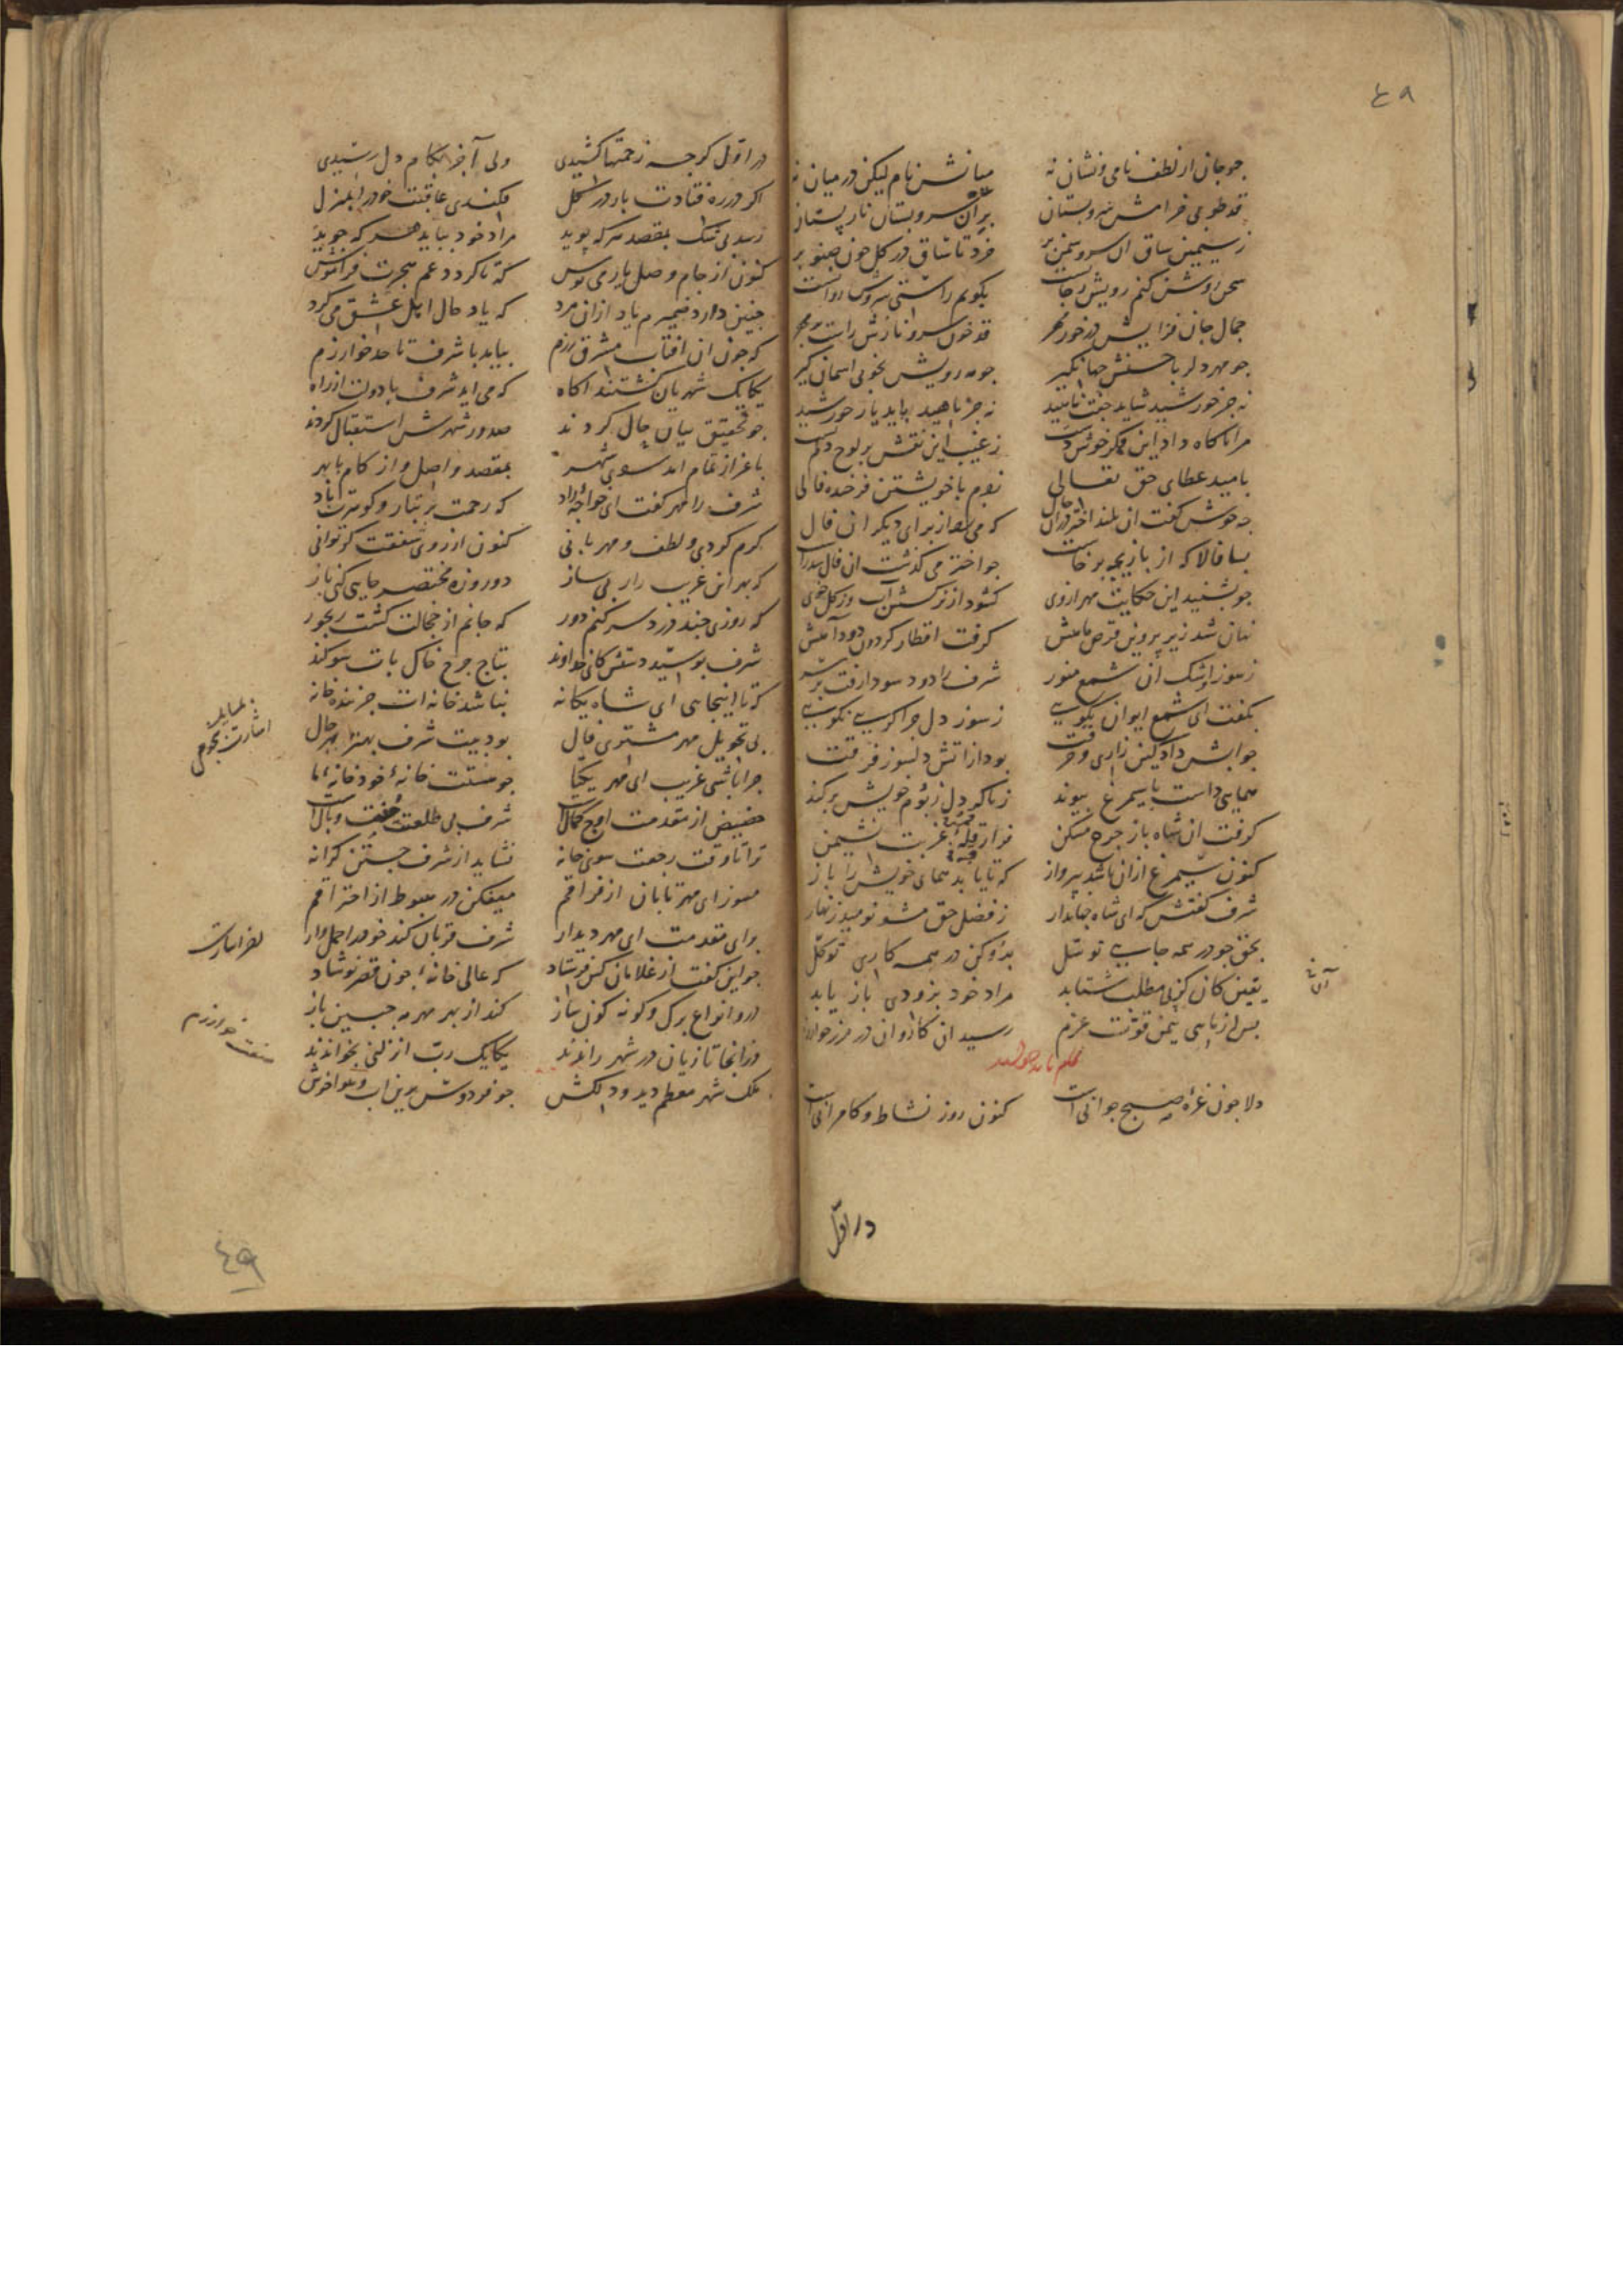 ٤٩
جو جان از لطف نامی و نشان نه میانش نام لیکن در میان نه
قد طوبی خرامش سرو بستان بران سرو بستان نار پستان
ز سیمین ساق ان سرو سمن بر فرو تا ساق در کل جون صنوبر
سخن روشن کنم رویش جو ماه است بکویم راستی سروش رواست
جمال جان فزایش در خور مهر قد خوش سرو نازش راست
جو مهر دلربا حسنش جهانکیر جو مه رویش بخوبی اسمان کیر
نه جز خورشید شاید جفت ناهید نه جز ناهید باید یار خورشید
مرا ناکاه داد این فکر خوش دست ز غیب این نقش بر لوح دلم
بامید عطای حق تعالی زدم با خویشتن فرخنده فالی
چه خوش کفت ان بلند اختر در ان حال که می زد از برای دیکران فال
بسا فالا که از بازیچه برخاست جو اختر می کذشت ان فال شد راست
جو بشنید این حکایت مهر ازوی کشود از نرکسش آب وز کل خوی
نهان شد زیر پروین قرص ماهش کرفت اقطار کردون دود آهش
ز سوز اشک ان شمع منور شرف را دود سودا رفت بر سر
بکفت ای شمع ایوان نکویی ز سوز دل جرا کریی نکویی
جوابش داد کین زاری و حرقت بود از اتش دلسوز فرقت
همایی داست با سیمرغ پیوند ز ناکه دل ز بوم خویش برکند
کرفت ان شاه باز جرخ مسکن فراز قله غربت نشیمن
کنون سیمرغ ازان باشد بپرواز که تا یابد همای خویش را باز
شرف کفتش که ای شاه جهاندار ز فضل حق مشو نومید زنهار
بحق جو در همه جایی توسل بدو کن در همه کاری توکل
یقین کان کز پی مطلب شتابد مراد خود بزودی باز یابد
بس از ماهی بیمن قوت عزم رسید ان کاروان در مرز خوارزم
دلا جون غره صبح جوانی است کنون روز نشاط و کامرانی است
در اول
در اول کرجه زحمتها کشیدی ولی آخر بکام دل رسیدی
اکر در ره فتادت بار در کل فکندی عاقبت خود را بمنزل
رسد بی شک بمقصد هر که پوید مراد خود بیابد هر که جوید
کنون از جام وصل یار می نوش که تا کردد غم هجرت فراموش
جنین دارد ضمیرم یاد ازان مرد که یاد حال اهل عشق می کرد
که جون ان افتاب مشرق رزم بیامد با شرف تا حد خوارزم
یکایک شهریان کشتند اکاه که می اید شرف با دولت از راه
جو تحقیق بیان حال کردند صدور شهرش استقبال کردند
باعزاز تمام امد سوی شهر بمقصد واصل و از کام با بهر
شرف را مهر کفت ای خواجه راد که رحمت بر تبار و کوهرت باد
کرم کردی و لطف و مهربانی کنون از روی شفقت کر توانی
که بهر این غریب زار بی ساز دو روزه مختصر جایی کنی باز
که روزی جند درد سر کنم دور که جانم از خجالت کشت رنجور
شرف بوسید دستش کای خداوند بتاج جرخ خاک پات سوکند
که تا اینجایی ای شاه یکانه نباشد خانه ات جز بنده خانه
بی تحویل مهر مشتری فال بود بیت شرف بهتر بهر حال
جرا باشی غریب ای مهر یکتا جو هستت خانه خود خانه ما
حضیض از مقدمت اوج کمال است شرف بی طلعتت جفت وبال است
ترا تا وقت رجعت سوی خانه نشاید از شرف جستن کرانه
مسوز ای مهر تابان از فراقم میفکن در هبوط از احتراقم
برای مقدمت ای مهر دیدار شرف قربان کند خود را حمل وار
جو این کفت از غلامان کس فرستاد که عالی خانه جون قصر نوشاد
درو انواع برک و کونه کون ساز کند از بهر مهر مه جبین باز
وز انجا تازیان در شهر راندند یکایک رب انزلنی بخواندند
ملک شهر معظم دید و دلکش جو فردوس برین اب و هوا خوش
صفت خوارزم
٤٩